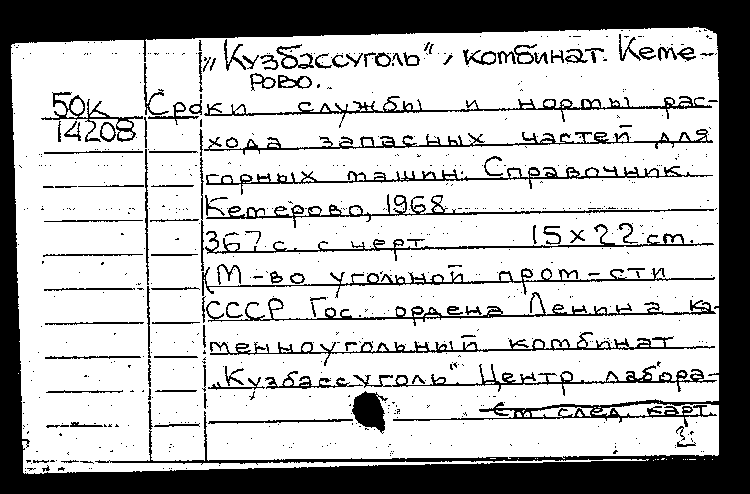 „Кузбассуголь“, комбинат. Кеме-
рово.
50к Сроки службы и нормы рас-
14208 хода запасных частей для
горных машин. Справочник.
Кемерово, 1968.
367 с. с черт. 15 x 22 cm.
(М-во угольной пром-сти
СССР Гос. ордена Ленина ка-
менноугольный комбинат
„Кузбассуголь“. Центр. лабора-
См след. карт.